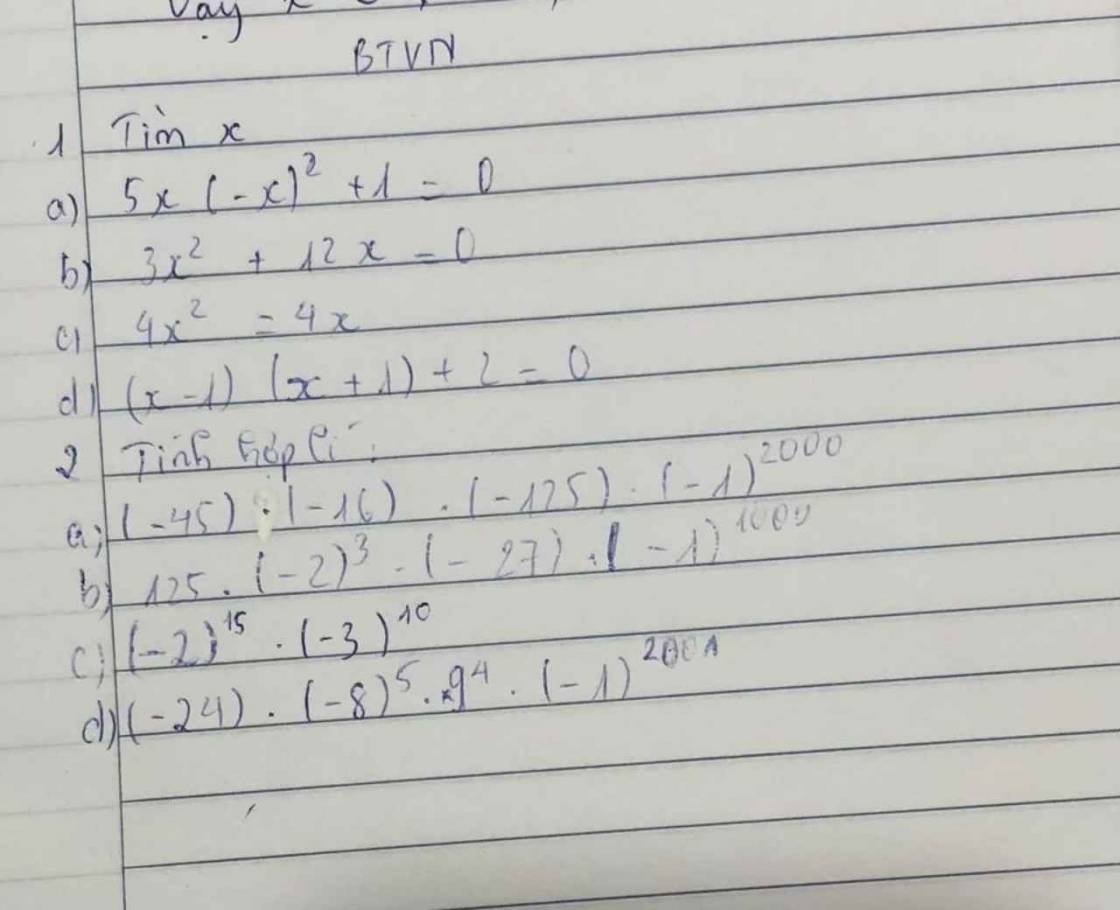 Vậy x
BTVN
1 Tìm x
a) 5x (-x)² + 1 = 0
b) 3x² + 12x = 0
c) 4x² = 4x
d) (x-1) (x+1) + 2 = 0
2 Tính hợp lí :
a; (-45) . (-16) . (-125) . (-1)²⁰⁰⁰
b) 125 . (-2)³ . (-27) . (-1)
c; (-2)¹⁵ . (-3)¹⁰
d) (-24) . (-8)⁵ . 9⁴ . (-1)²⁰⁰¹